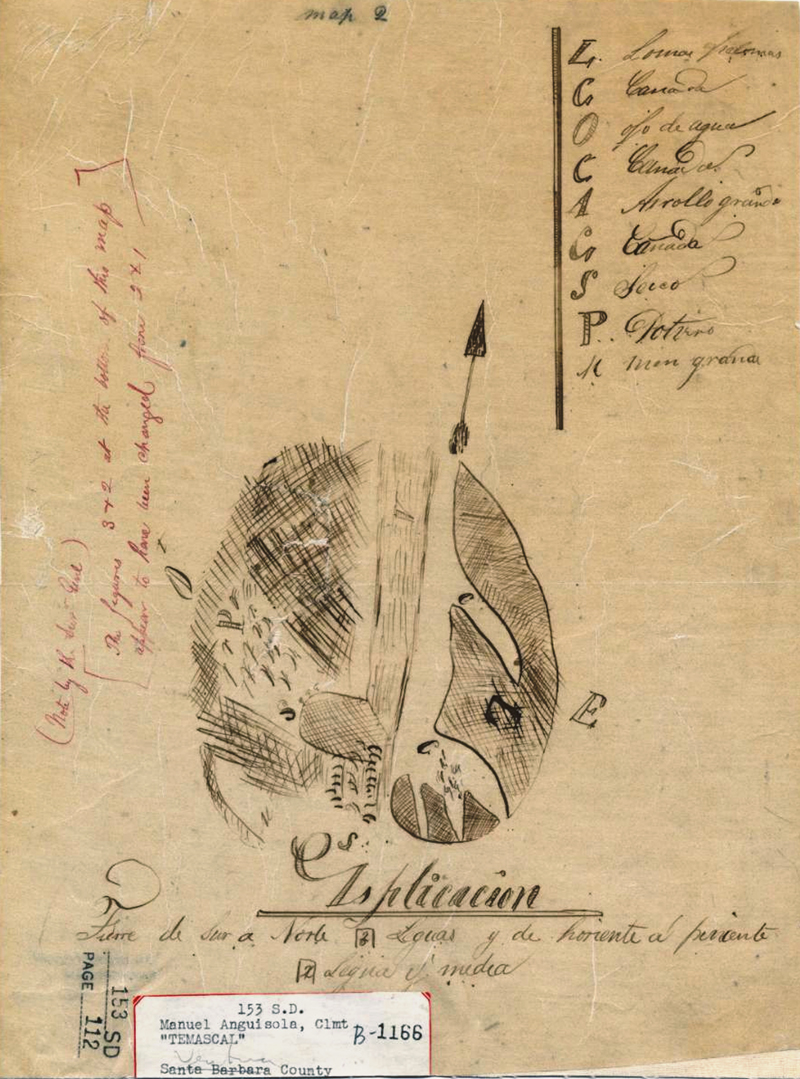 map 2
L. Lomas
C Cañada
O ojo de agua
C Cañada
A Arrollo grande
C Cañada
S Socco
P.. Potrero
M mon grana
(Note by the Sur Genl)
The figures 3 & 2 at the bottom of this map
appear to have been changed from 2 & 1
O
P
E
S
Esplicacion
Tiene de Sur a Norte 3 Leguas y de horiente á poniente
2 Legua y media
153 SD
PAGE 112
153 S.D.
Manuel Anguisola, Clmt
B-1166
"TEMASCAL"
Ventura
Santa Barbara County